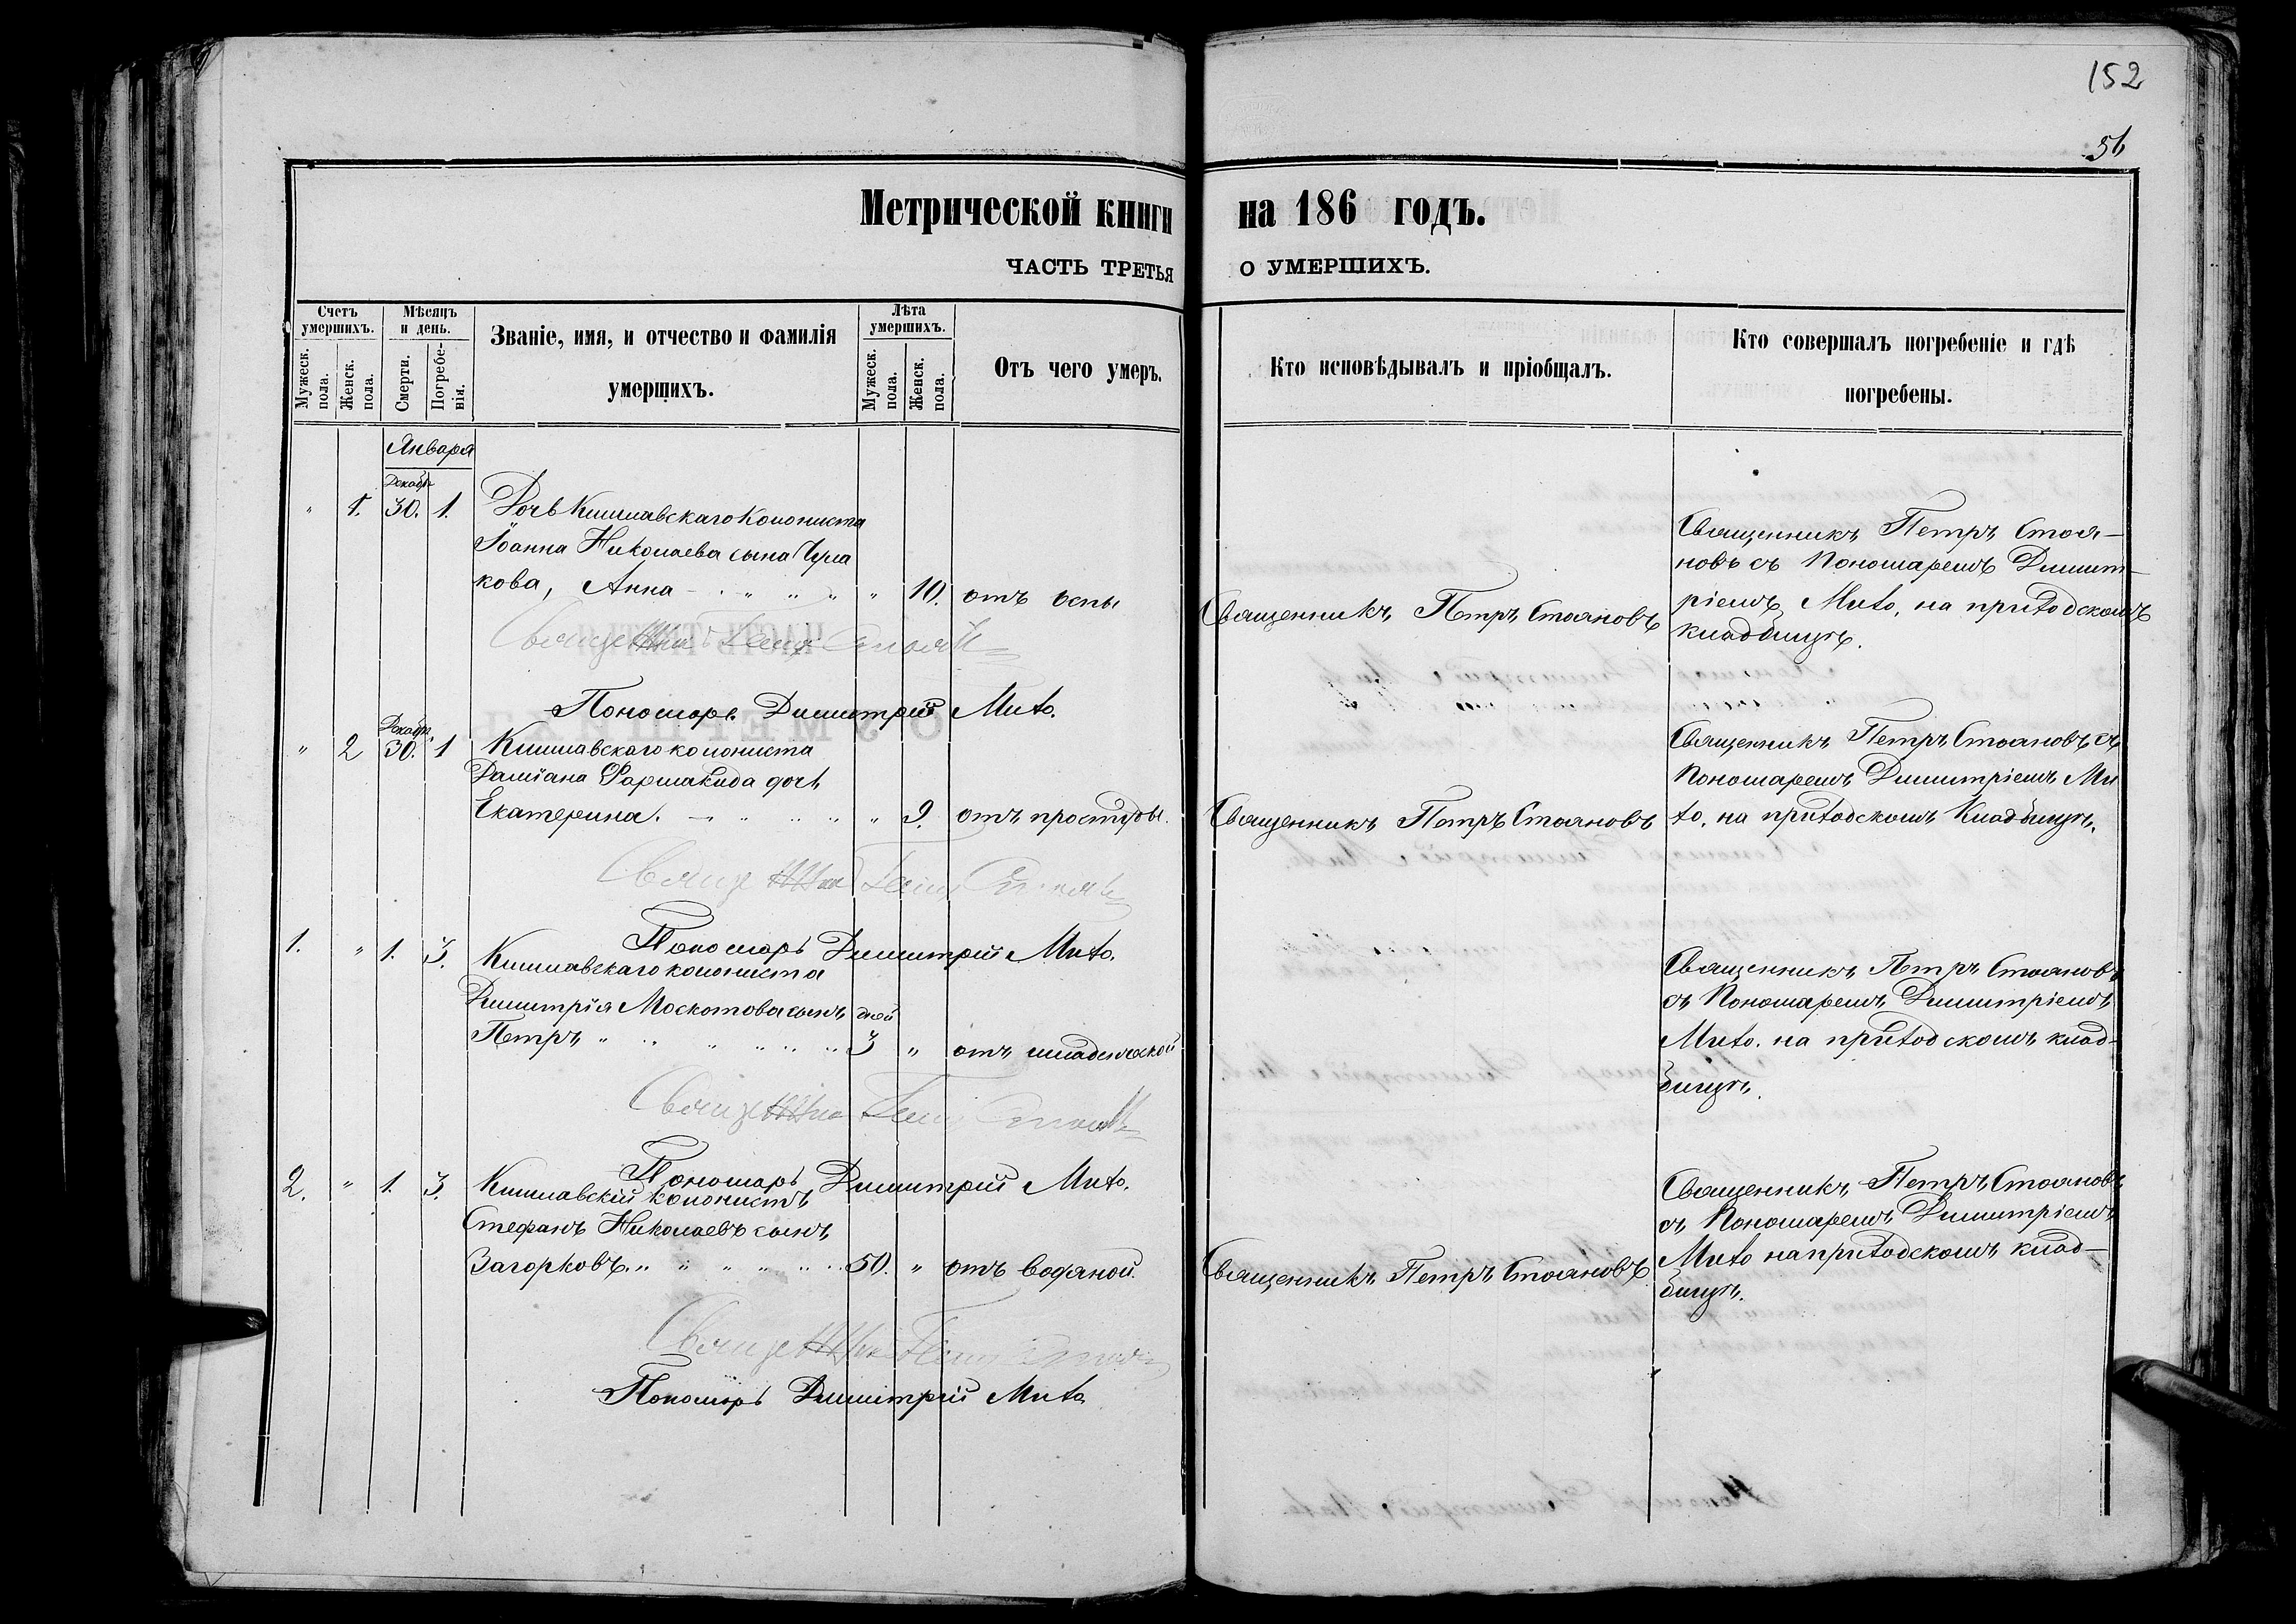 152
51
Метрической книги на 186 годъ.
ЧАСТЬ ТРЕТЬЯ О УМЕРШИХЪ.
Счетъ умершихъ.
Мужеск. пола.
Женск. пола.
Мѣсяцъ и день.
Смерти.
Погребенія.
Званіе, имя, и отчество и фамилія
умершихъ.
Лѣта умершихъ.
Мужеск. пола.
Женск. пола.
Отъ чего умеръ.
Кто исповѣдывалъ и пріобщалъ.
Кто совершалъ погребеніе и гдѣ
погребены.
Января
Декабр.
" 1. 30. 1. Дочь Кишлавскаго Колониста
Іоанна Николаева сына Чула
кова, Анна " 10. отъ оспы
Священникъ Петръ Стояновъ
Священникъ Петръ Стоя-
новъ съ Пономаремъ Димит-
ріемъ Мито, на приходскомъ
кладбищѣ.
Священникъ Петръ Стоянов
Пономарь Димитрій Мито.
Декабр.
" 2 30. 1 Кишлавскаго колониста
Даміана Фармакида дочь
Екатерина. " 9. отъ простуды.
Священникъ Петръ Стояновъ
Священникъ Петръ Стояновъ съ
Пономаремъ Димитріемъ Ми
то, на приходскомъ Кладбищѣ.
Священник Петръ Стоянов
Пономарь Димитрій Мито.
1. " 1. 3. Кишлавскаго колониста
Димитрія Москотова сынъ дней
Петръ 3 " отъ младенческой
Священникъ Петръ Стояновъ
съ Пономаремъ Димитріемъ
Мито. на приходскомъ клад-
бищѣ.
Священник Петръ Стоянов
Пономарь Димитрій Мито.
2. " 1. 3. Кишлавскій колонистъ
Стефанъ Николаевъ сынъ
Загорковъ. 50. " отъ водяной.
Священникъ Петръ Стояновъ
Священникъ Петръ Стояновъ
съ Пономаремъ Димитріемъ
Мито на приходскомъ клад-
бищѣ.
Священник Петръ Стоянов
Пономарь Димитрій Мито